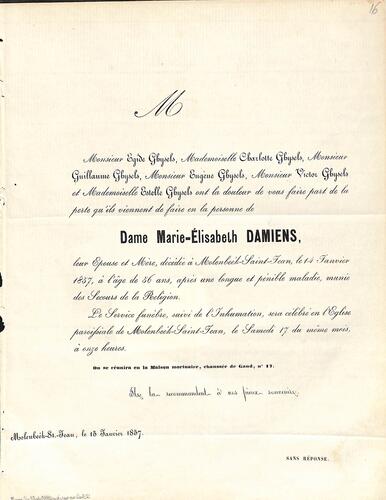 16
M
Monsieur Egide Gheysels, Mademoiselle Charlotte Gheysels, Monsieur
Guillaume Gheysels, Monsieur Eugène Gheysels, Monsieur Victor Gheysels
et Mademoiselle Estelle Gheysels ont la douleur de vous faire part de la
perte qu'ils viennent de faire en la personne de
Dame Marie-Élisabeth DAMIENS,
leur Epouse et Mère, décédée à Molenbeék-Saint-Jean, le 14 Janvier
1857, à l'âge de 56 ans, après une longue et pénible maladie, munie
des Secours de la Religion.
Le Service funèbre, suivi de l'Inhumation, sera célébré en l'Eglise
paroissiale de Molenbeék-Saint-Jean, le Samedi 17 du même mois,
à onze heures.
On se réunira en la Maison mortuaire, chaussée de Gand, nº 17.
Ils la recommandent à vos pieux souvenirs.
Molenbeék-St.-Jean, le 15 Janvier 1857.
SANS RÉPONSE.